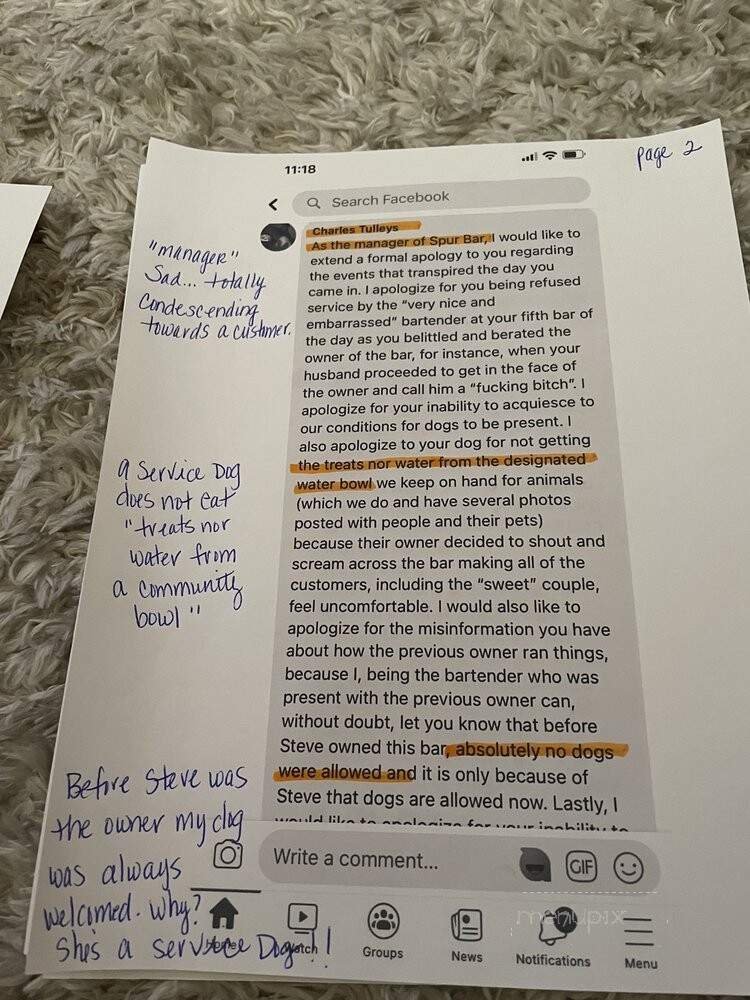 page 2
11:18
Search Facebook
Charles Tulleys
As the manager of Spur Bar, I would like to
extend a formal apology to you regarding
the events that transpired the day you
came in. I apologize for you being refused
service by the "very nice and
embarrassed" bartender at your fifth bar of
the day as you belittled and berated the
owner of the bar, for instance, when your
husband proceeded to get in the face of
the owner and call him a "fucking bitch". I
apologize for your inability to acquiesce to
our conditions for dogs to be present. I
also apologize to your dog for not getting
the treats nor water from the designated
water bowl we keep on hand for animals
(which we do and have several photos
posted with people and their pets)
because their owner decided to shout and
scream across the bar making all of the
customers, including the "sweet" couple,
feel uncomfortable. I would also like to
apologize for the misinformation you have
about how the previous owner ran things,
because I, being the bartender who was
present with the previous owner can,
without doubt, let you know that before
Steve owned this bar, absolutely no dogs
were allowed and it is only because of
Steve that dogs are allowed now. Lastly, I
would like to apologize for your inability to
"manager"
Sad... totally
Condescending
towards a customer.
a Service Dog
does not eat
"treats nor
water from
a community
bowl"
Before Steve was
the owner my dog
was always
welcomed. Why?
She's a service Dog!!
Write a comment...
GIF
Home
Watch
Groups
News
Notifications
Menu
menupix